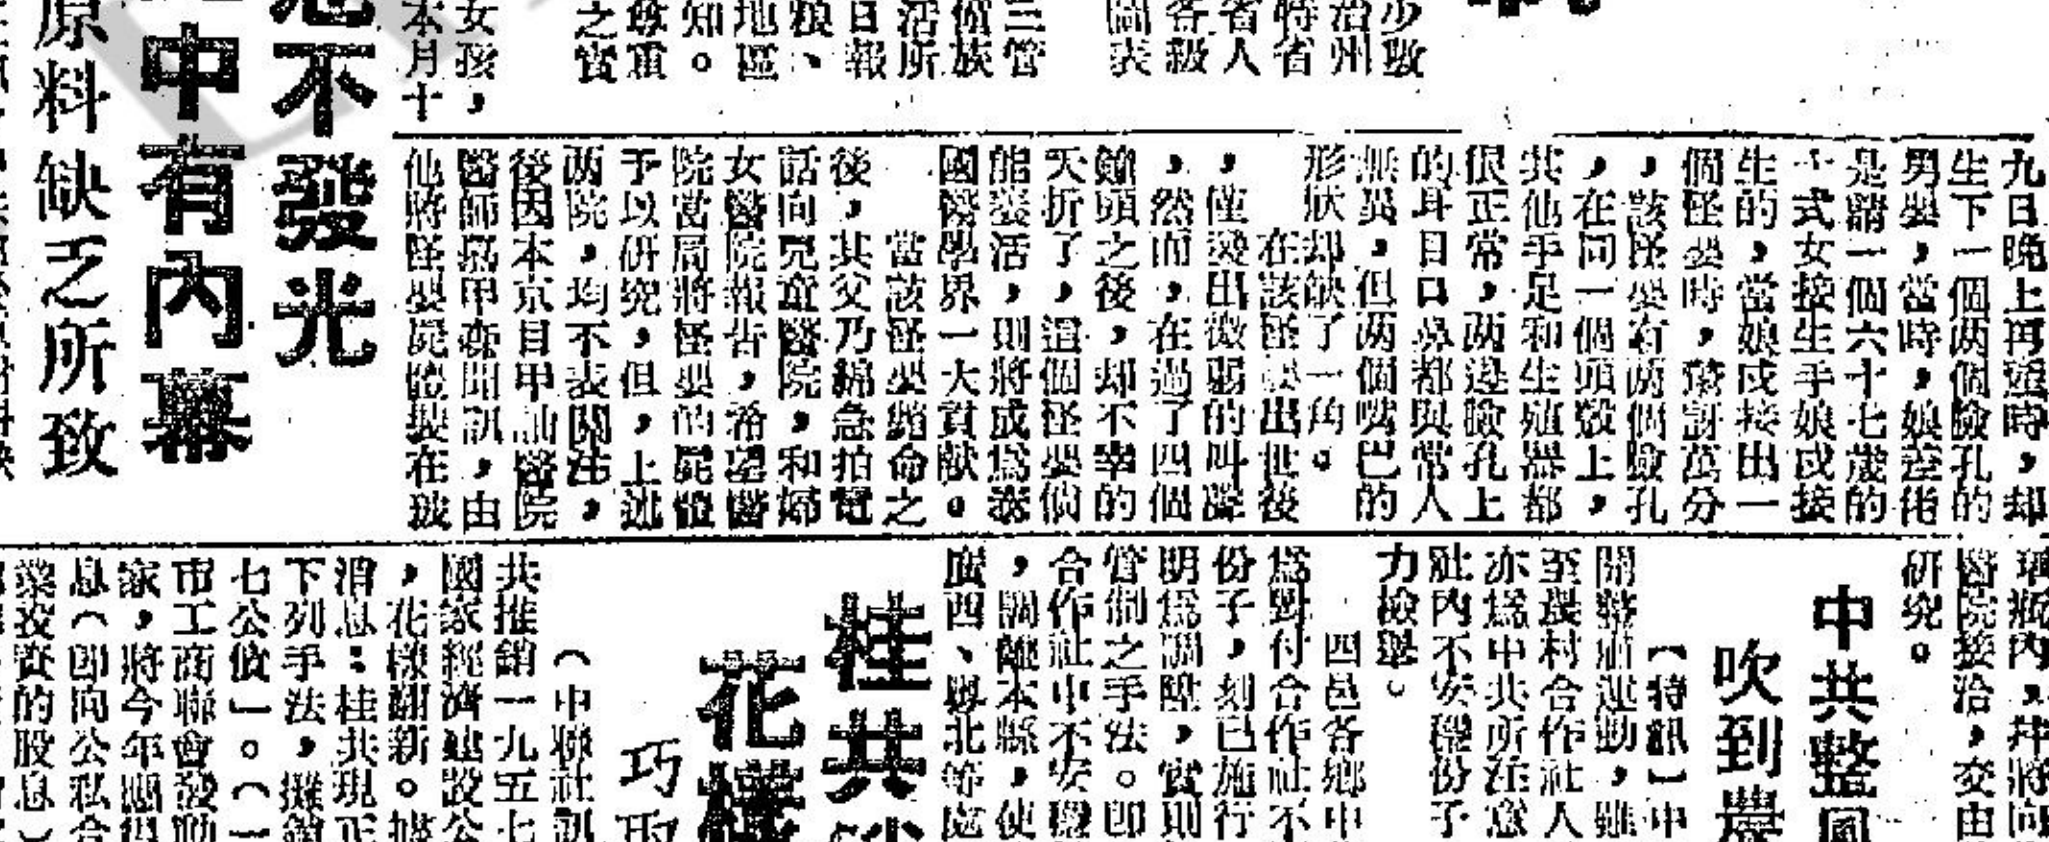 少數
治州
特省
省人
各級
圖表
三管
僮族
活所
日報
粮、
地區
知。
尊重
之實
女孩，
本月十
九日晚上再臨時，却
生下一個两個臉孔的
男嬰，當時，娘差侘
是請一個六十七歲的
十式女接生手娘戍接
生的，當娘戍接出一
個怪嬰時，驚訝萬分
，該怪嬰有两個臉孔
，在同一個頭殼上，
其他手足和生殖器都
很正常，两邊臉孔上
的耳目口鼻都與常人
無異，但两個嘴巴的
形狀却缺了一角。
在該怪嬰出世後
，僅發出微弱的叫聲
，然而，在過了四個
鐘頭之後，却不幸的
夭折了，這個怪嬰倘
能養活，則將成為泰
國醫學界一大貢献。
當該怪嬰斃命之
後，其父乃綿急拍電
話向兒童醫院，和婦
女醫院報告，希望醫
院當局將怪嬰的屍體
予以研究，但，上述
两院，均不表關注，
後因本京目甲訕醫院
醫師乃甲森聞訊，由
他將怪嬰屍體裝在玻
璃瓶內，并將向
醫院接洽，交由
研究。
不發光
中有內幕
原料缺乏所致
中共整風
吹到農
【特訊】中
開整風運動，雖
至農村合作社人
亦為中共所注意
社內不安穩份子
力檢舉。
四邑各鄉中
為對付合作社不
份子，刻已施行
明為調陞，實則
管制之手法。即
合作社中不安穩
，調離本縣，使
廣西、粵北等處
桂共
花樣
巧取
（中聯社訊
共推銷一九五七
國家經濟建設公
，花樣翻新。據
消息：桂共現正
下列手法，攤銷
七公債」。（一
市工商聯會發動
家，將今年應得
息（即向公私合
業投資的股息）